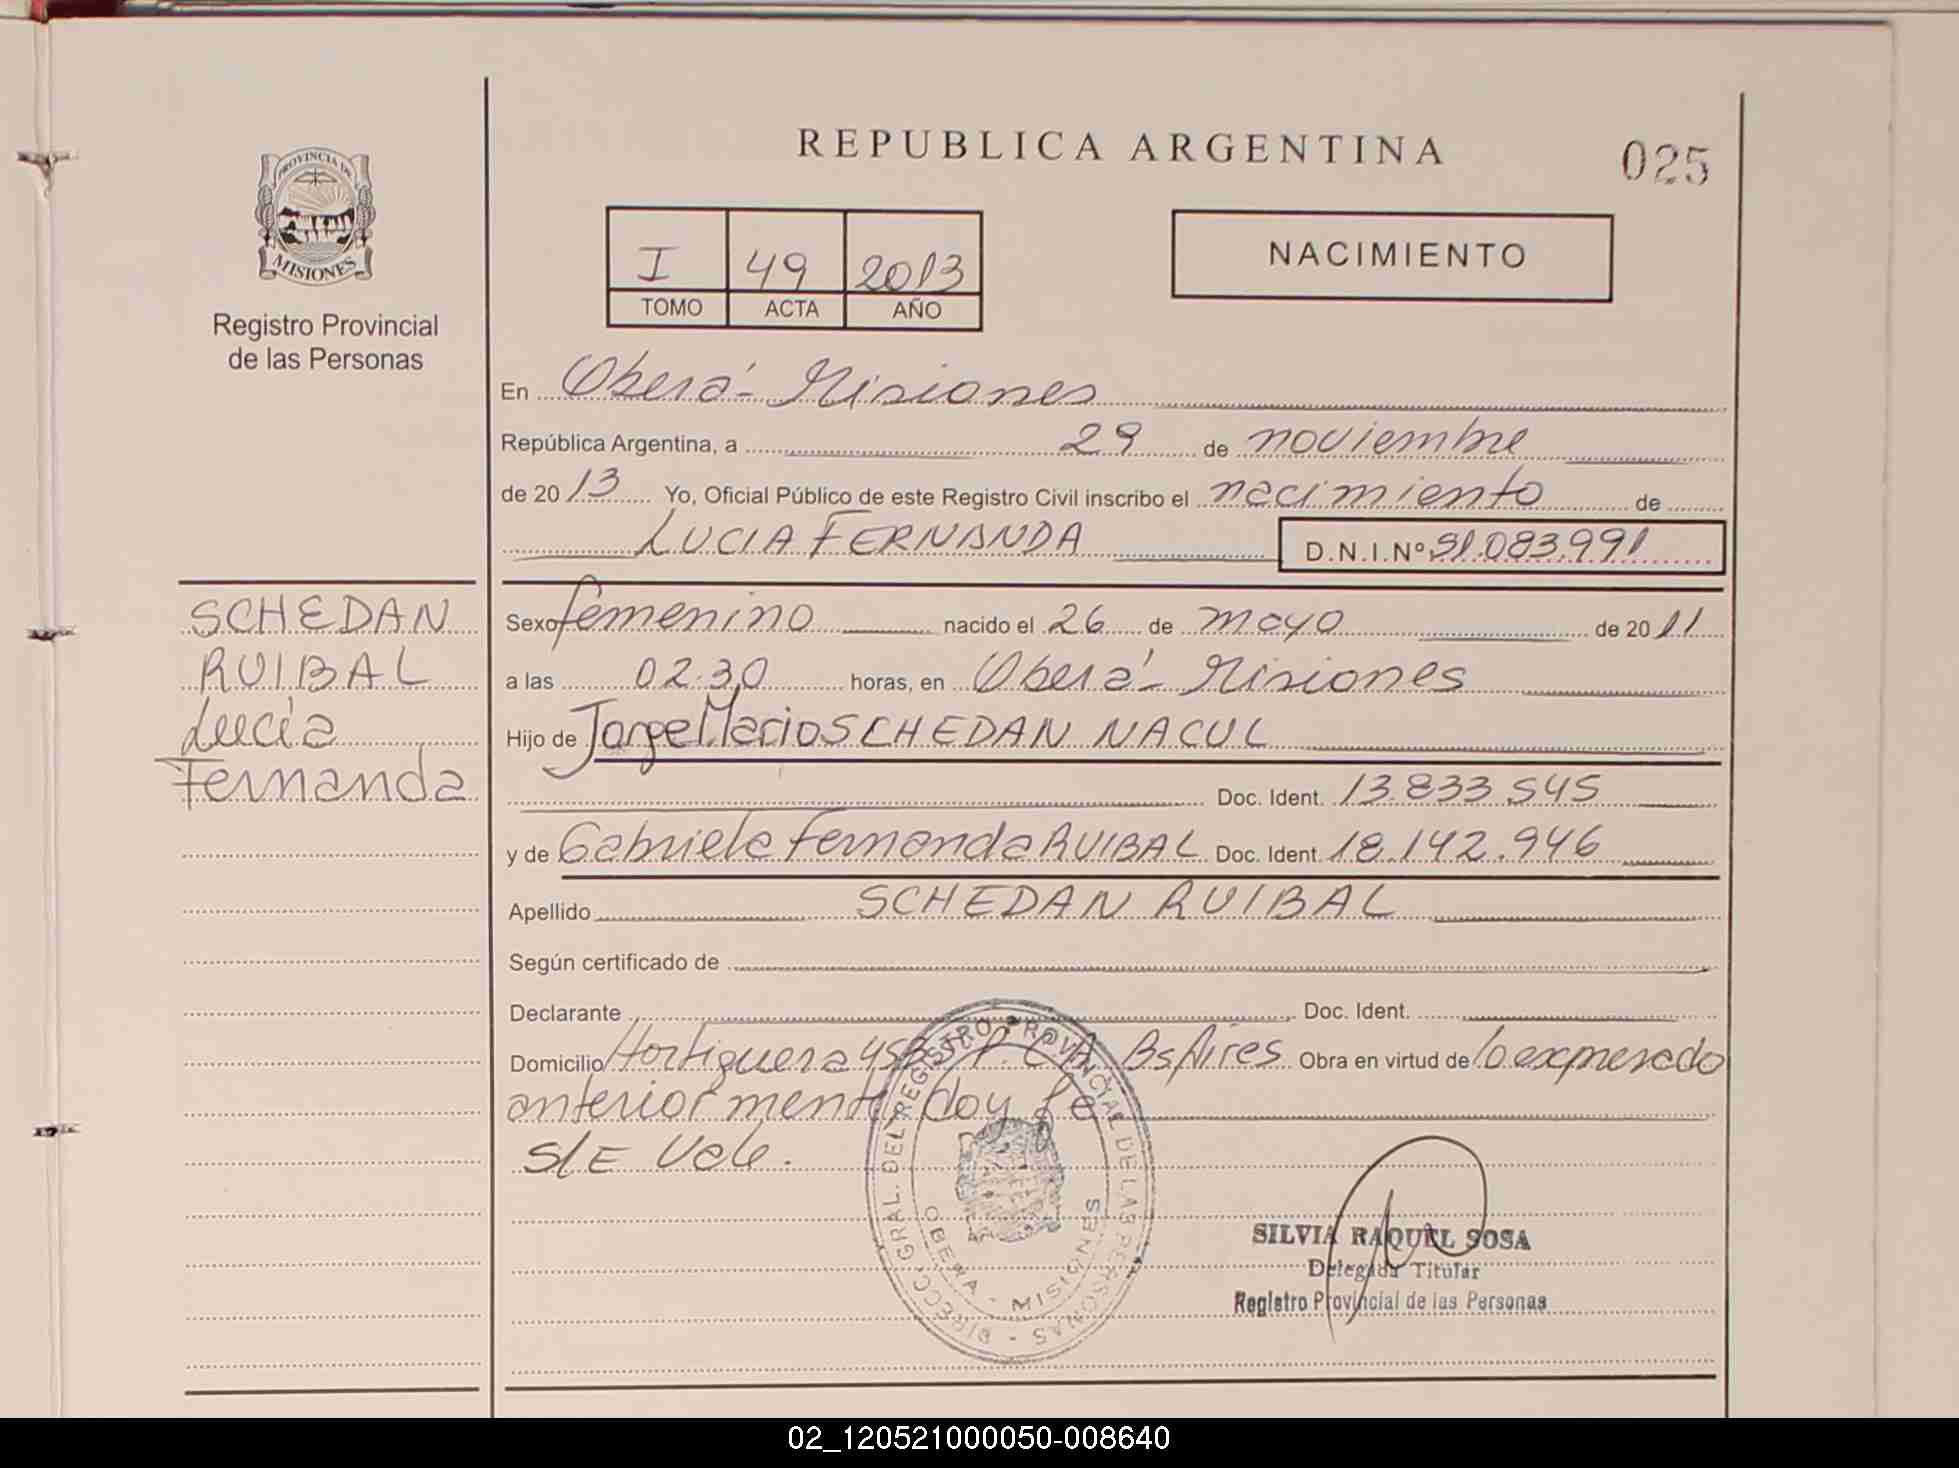 REPUBLICA ARGENTINA
025
PROVINCIA DE
MISIONES
Registro Provincial
de las Personas
I 49 2013
TOMO ACTA AÑO
NACIMIENTO
En Oberá - Misiones
República Argentina, a 29 de noviembre
de 2013 Yo, Oficial Público de este Registro Civil inscribo el nacimiento de
LUCIA FERNANDA D.N.I.Nº 51.083.991
SCHEDAN
RUIBAL
Lucia
Fernanda
Sexo femenino nacido el 26 de mayo de 2011
a las 02.30 horas, en Oberá - Misiones
Hijo de Jorge Mario SCHEDAN NACUL
Doc. Ident. 13.833.545
y de Gabriela Fernanda RUIBAL Doc. Ident. 18.142.946
Apellido SCHEDAN RUIBAL
Según certificado de
Declarante Doc. Ident.
Domicilio Hortiguera Bs Aires Obra en virtud de lo expresado
anteriormente doy fe
S/E Vale.
DIRECC. GRAL. DEL REGISTRO PROVINCIAL DE LAS PERSONAS
OBERA - MISIONES
SILVIA RAQUEL SOSA
Delegada Titular
Registro Provincial de las Personas
02_120521000050-008640